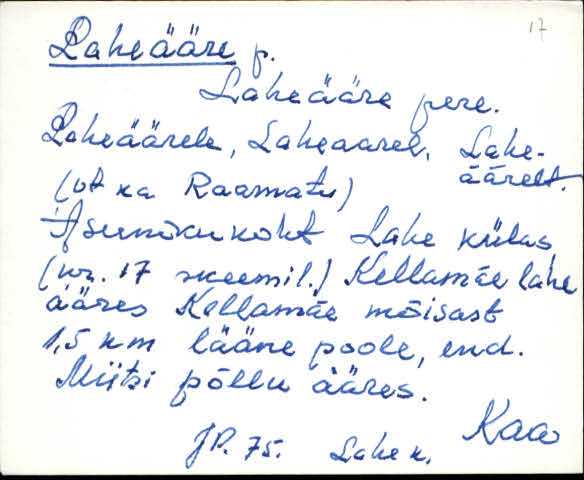 17
Laheääre p.
Laheääre pere.
Laheäärele, Laheaarel, Lahe-
äärelt.
(vt ka Raamatu)
Asunikukoht Lahe külas
(nr. 17 skeemil.) Kellamäe lahe
ääres Kellamäe mõisast
1,5 km lääne poole, end.
Miitsi põllu ääres.
JP. 75. Lahe k. Kaa